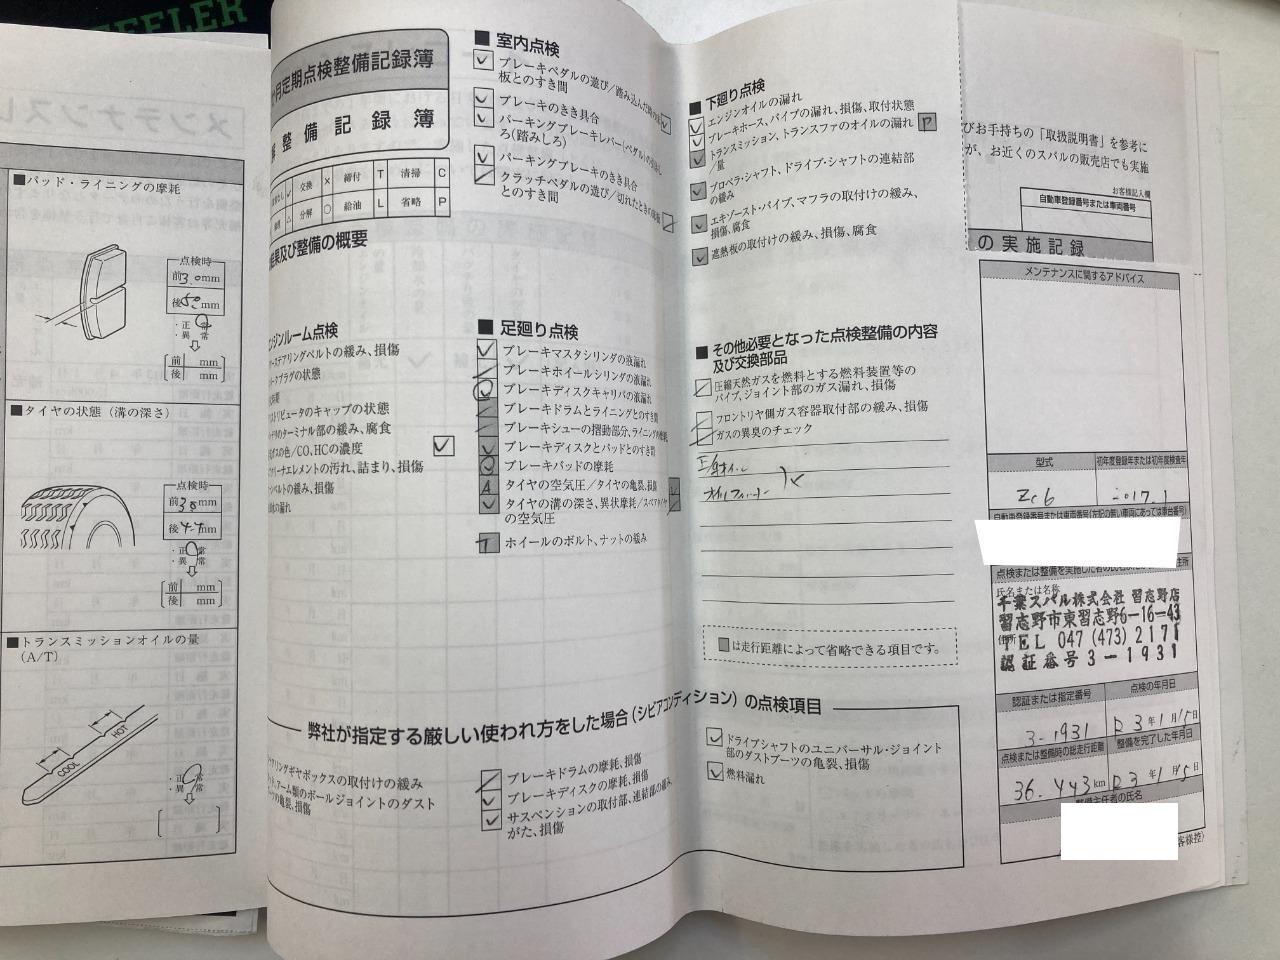 ■パッド・ライニングの摩耗
点検時
前3.0mm
後5.0mm
・正常
・異常
前 mm
後 mm
■タイヤの状態（溝の深さ）
点検時
後4.7mm
・正常
・異常
前 mm
後 mm
■トランスミッションオイルの量
（A/T）
HOT
COOL
・正常
・異常
月定期点検整備記録簿
整備記録簿
交換 × 締付 T 清掃 C
分解 ○ 給油 L 省略 P
結果及び整備の概要
■ 室内点検
板とのすき間
ブレーキのきき具合
ろ(踏みしろ)
パーキングブレーキのきき具合
とのすき間
■ 下廻り点検
エンジンオイルの漏れ
ブレーキホース、パイプの漏れ、損傷、取付状態
トランスミッション、トランスファのオイルの漏れ P
／量
プロペラ・シャフト、ドライブ・シャフトの連結部
の緩み
エキゾースト・パイプ、マフラの取付けの緩み、
損傷、腐食
遮熱板の取付けの緩み、損傷、腐食
ンジンルーム点検
ワーステアリングベルトの緩み、損傷
ークプラグの状態
ストリビュータのキャップの状態
ッテリのターミナル部の緩み、腐食
ガスの色／CO、HCの濃度
ークリーナエレメントの汚れ、詰まり、損傷
ンベルトの緩み、損傷
■ 足廻り点検
ブレーキマスタシリンダの液漏れ
ブレーキホイールシリンダの液漏れ
ブレーキディスクキャリパの液漏れ
ブレーキドラムとライニングとのすき間
ブレーキシューの摺動部分、ライニングの摩耗
ブレーキディスクとパッドとのすき間
ブレーキパッドの摩耗
A タイヤの空気圧／タイヤの亀裂、損傷
タイヤの溝の深さ、異状摩耗／スペアタイヤ
の空気圧
T ホイールのボルト、ナットの緩み
■ その他必要となった点検整備の内容
及び交換部品
圧縮天然ガスを燃料とする燃料装置等の
パイプ、ジョイント部のガス漏れ、損傷
フロントリヤ側ガス容器取付部の緩み、損傷
ガスの異臭のチェック
は走行距離によって省略できる項目です。
弊社が指定する厳しい使われ方をした場合（シビアコンディション）の点検項目
アリングギヤボックスの取付けの緩み
ト、アーム類のボールジョイントのダスト
ツの亀裂、損傷
ブレーキドラムの摩耗、損傷
ブレーキディスクの摩耗、損傷
サスペンションの取付部、連結部の緩み、
がた、損傷
ドライブシャフトのユニバーサル・ジョイント
部のダストブーツの亀裂、損傷
燃料漏れ
びお手持ちの「取扱説明書」を参考に
が、お近くのスバルの販売店でも実施
お客様記入欄
自動車登録番号または車両番号
の実施記録
メンテナンスに関するアドバイス
型式 初年度登録年または初年度検査年
ZC6 2017.1
自動車登録番号または車両番号(左記の無い車両にあっては車台番号)
氏名または名称
千葉スバル株式会社 習志野店
習志野市東習志野6-16-43
住所
TEL 047 (473) 2171
認証番号 3-1931
認証または指定番号 点検の年月日
3-1931 R3年1月15日
点検または整備時の総走行距離 整備を完了した年月日
36.443km R3年1月15日
整備主任者の氏名
客様控)